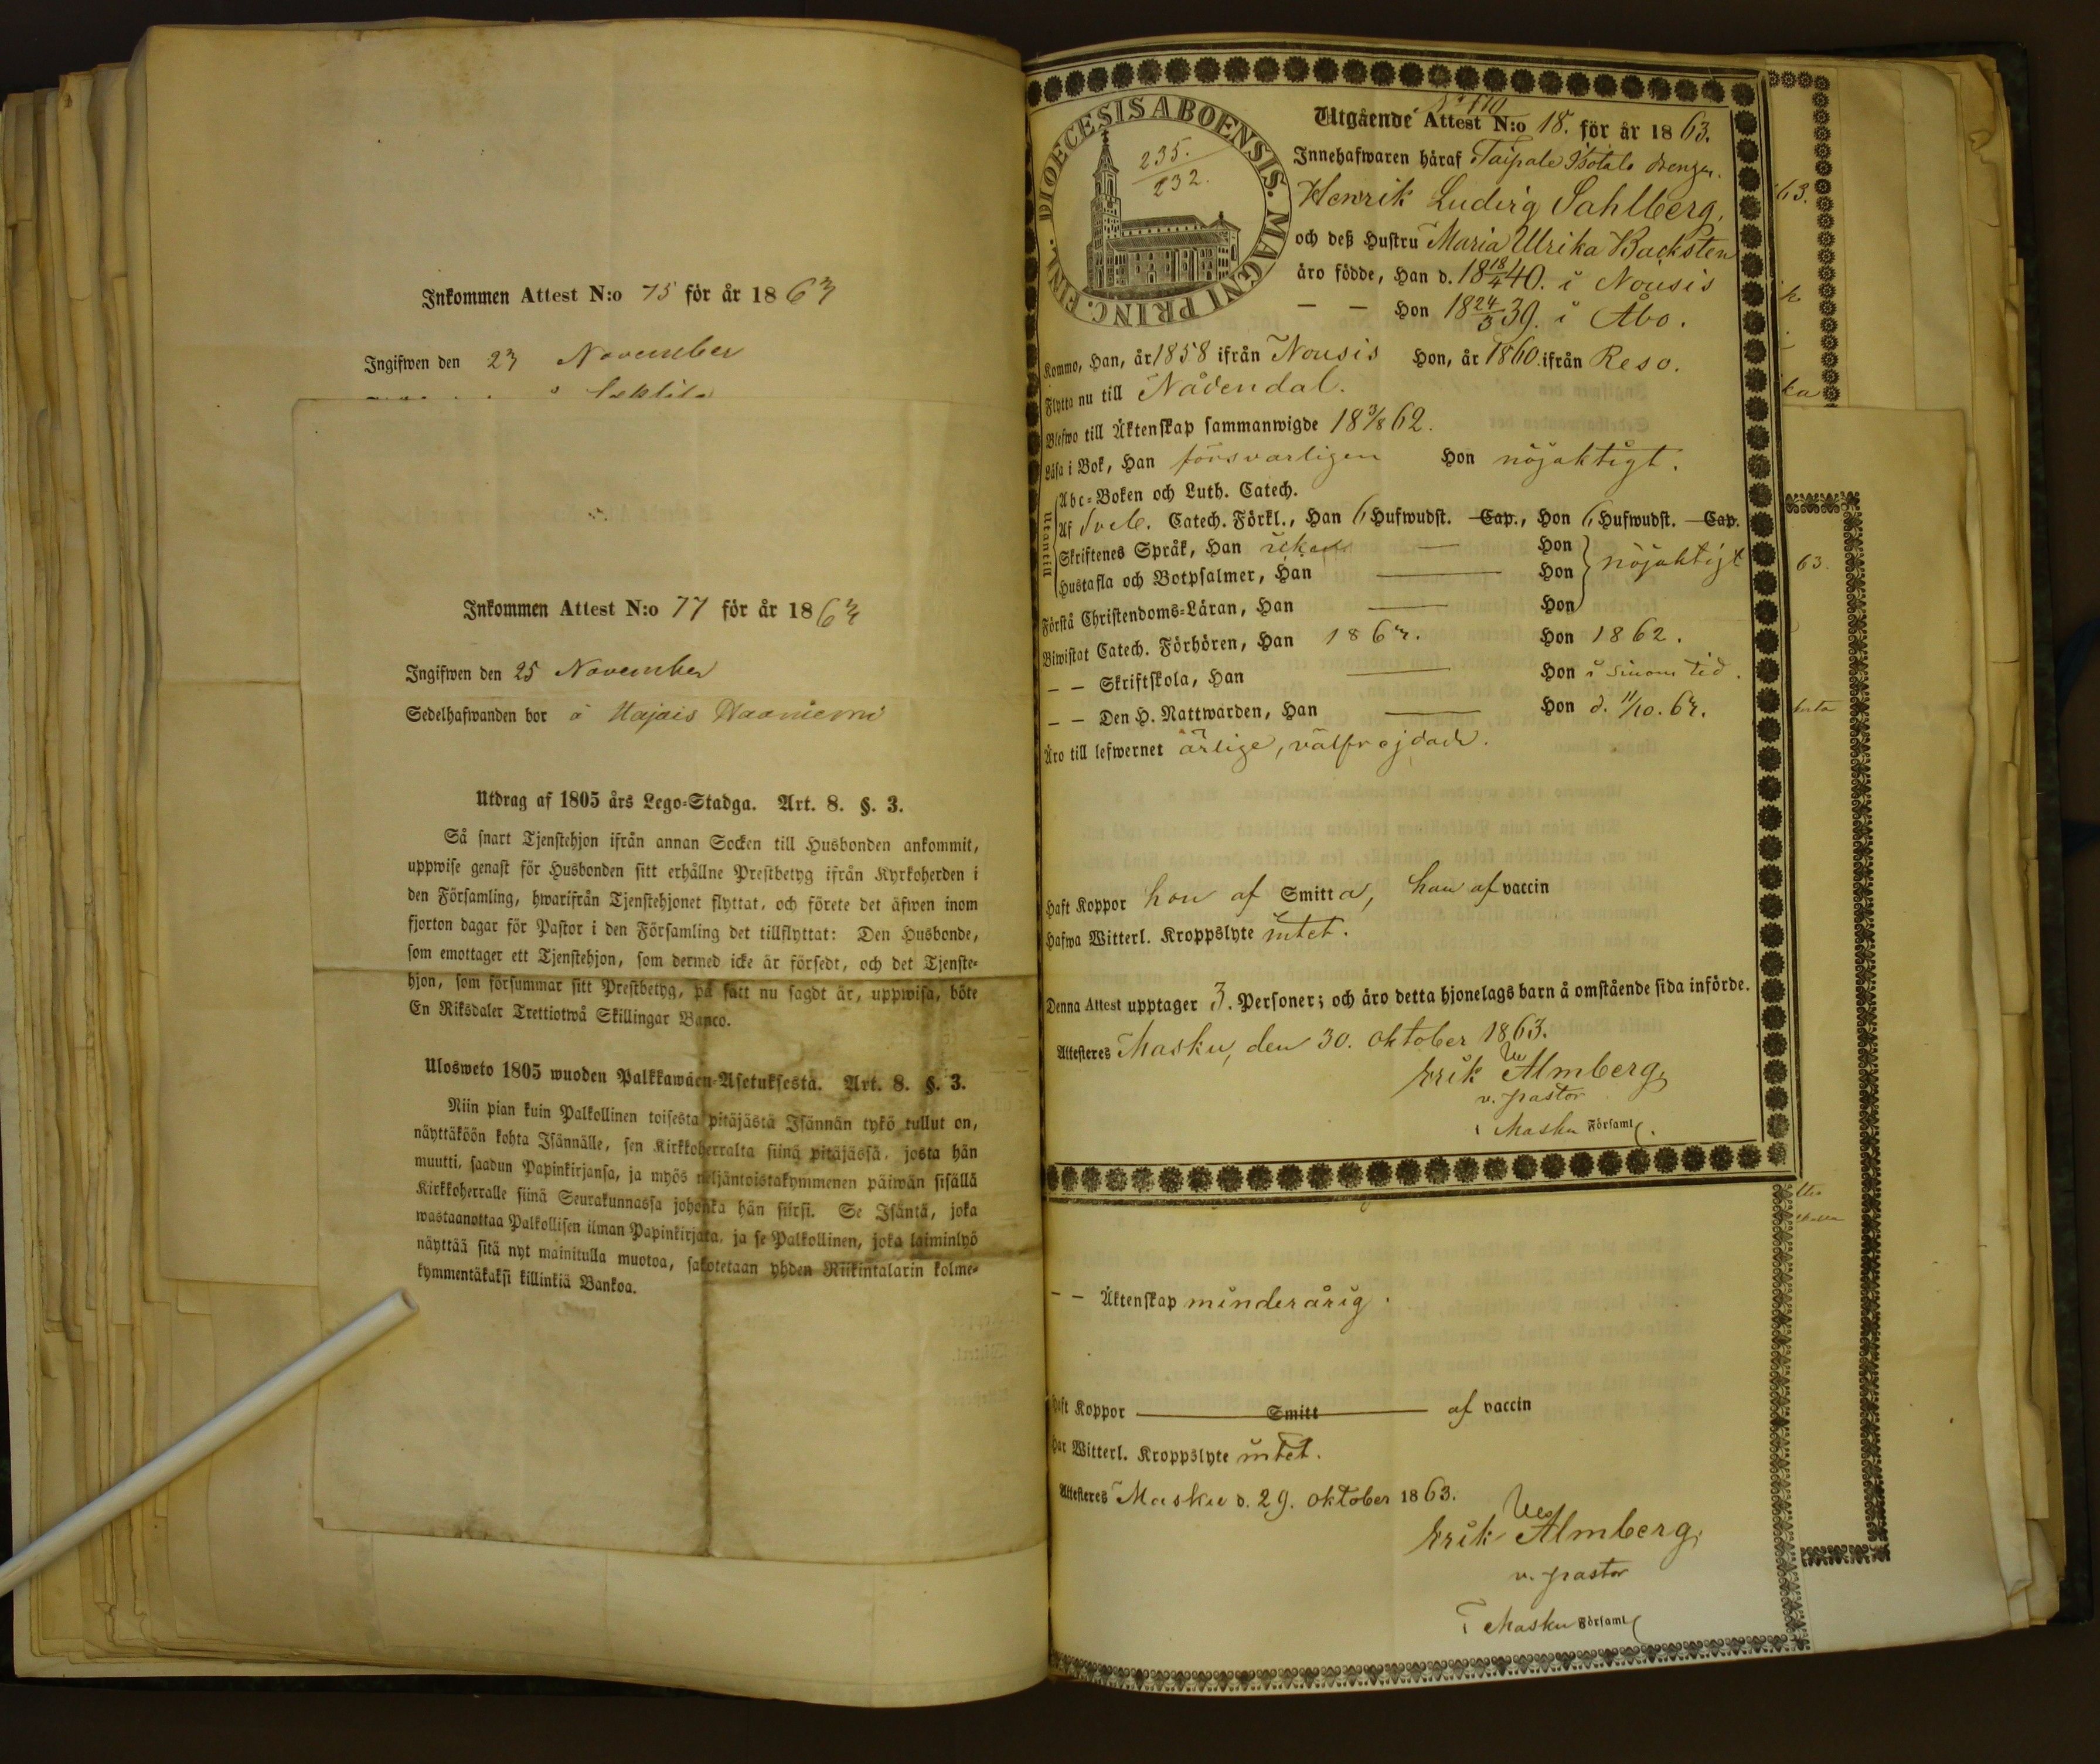 Inkommen Attest N:o 75 för år 1863
Ingifwen den 23 November
Inkommen Attest N:o 77 för år 1863
Ingifwen den 25 November
Sedelhafwanden bor å Hajais Naaniemi
Utdrag af 1805 års Lego-Stadga. Art. 8. §. 3.
Så snart Tjenstehjon ifrån annan Socken till Husbonden ankommit,
uppwise genast för Husbonden sitt erhållne Prestbetyg ifrån Kyrkoherden i
den Församling, hwarifrån Tjenstehjonet flyttat, och förete det äfwen inom
fjorton dagar för Pastor i den Församling det tillflyttat: Den Husbonde,
som emottager ett Tjenstehjon, som dermed icke är försedt, och det Tjenste-
hjon, som försummar sitt Prestbetyg, på sätt nu sagdt är, uppwisa, böte
En Riksdaler Trettiotwå Skillingar Banco.
Ulosweto 1805 wuoden Palkkawäen-Asetuksesta. Art. 8. §. 3.
Niin pian kuin Palkollinen toisesta pitäjästä Isännän tykö tullut on,
näyttäköön kohta Isännälle, sen Kirkkoherralta siinä pitäjässä, josta hän
muutti, saadun Papinkirjansa, ja myös neljäntoistakymmenen päiwän sisällä
Kirkkoherralle siinä Seurakunnassa johonka hän siirsi. Se Isäntä, joka
wastaanottaa Palkollisen ilman Papinkirjata, ja se Palkollinen, joka laiminlyö
näyttää sitä nyt mainitulla muotoa, sakotetaan yhden Riikintalarin kolme-
kymmentäkaksi killinkiä Bankoa.
DIOECESIS ABOENSIS. MAGNI PRINC. FINL.
235.
232.
N:o 110
Utgående Attest N:o 18. för år 1863.
Innehafwaren häraf Taipale Isotalo drengen
Henrik Ludvig Sahlberg,
och deß Hustru Maria Ulrika Backsten
äro födde, Han d. 18 18/4 40. i Nousis
— — Hon 18 24/3 39. i Åbo.
Kommo, Han, år 1858 ifrån Nousis Hon, år 1860. ifrån Reso.
Flytta nu till Nådendal.
Blefwo till Äktenskap sammanwigde 18 3/8 62.
Läsa i Bok, Han försvarligen Hon nöjaktigt.
Utantill
Abc-Boken och Luth. Catech.
Af Sveb. Catech. Förkl., Han 6 Hufwudst. Cap., Hon 6 Hufwudst. Cap.
Skriftenes Språk, Han — Hon
Hustafla och Botpsalmer, Han — Hon nöjaktigt
Förstå Christendoms-Läran, Han — Hon
Biwistat Catech. Förhören, Han 1862. Hon 1862.
— — Skriftskola, Han — Hon i sinom tid.
— — Den H. Nattwarden, Han — Hon d. 11/10. 62.
Äro till lefwernet ärlige, välfrejdade.
Haft Koppor hon af Smitta, han af vaccin
Hafwa Witterl. Kroppslyte intet.
Denna Attest upptager 3. Personer; och äro detta hjonelags barn å omstående sida införde.
Attesteres Masku, den 30. oktober 1863.
Erik Wm Almberg,
v. pastor
i Masku Församl.
— — Äktenskap minderårig.
Haft Koppor — Smitt — af vaccin
Har Witterl. Kroppslyte intet.
Attesteres Masku d. 29. oktober 1863.
Erik Wm Almberg,
v. pastor
i Masku Församl.
63.
63.